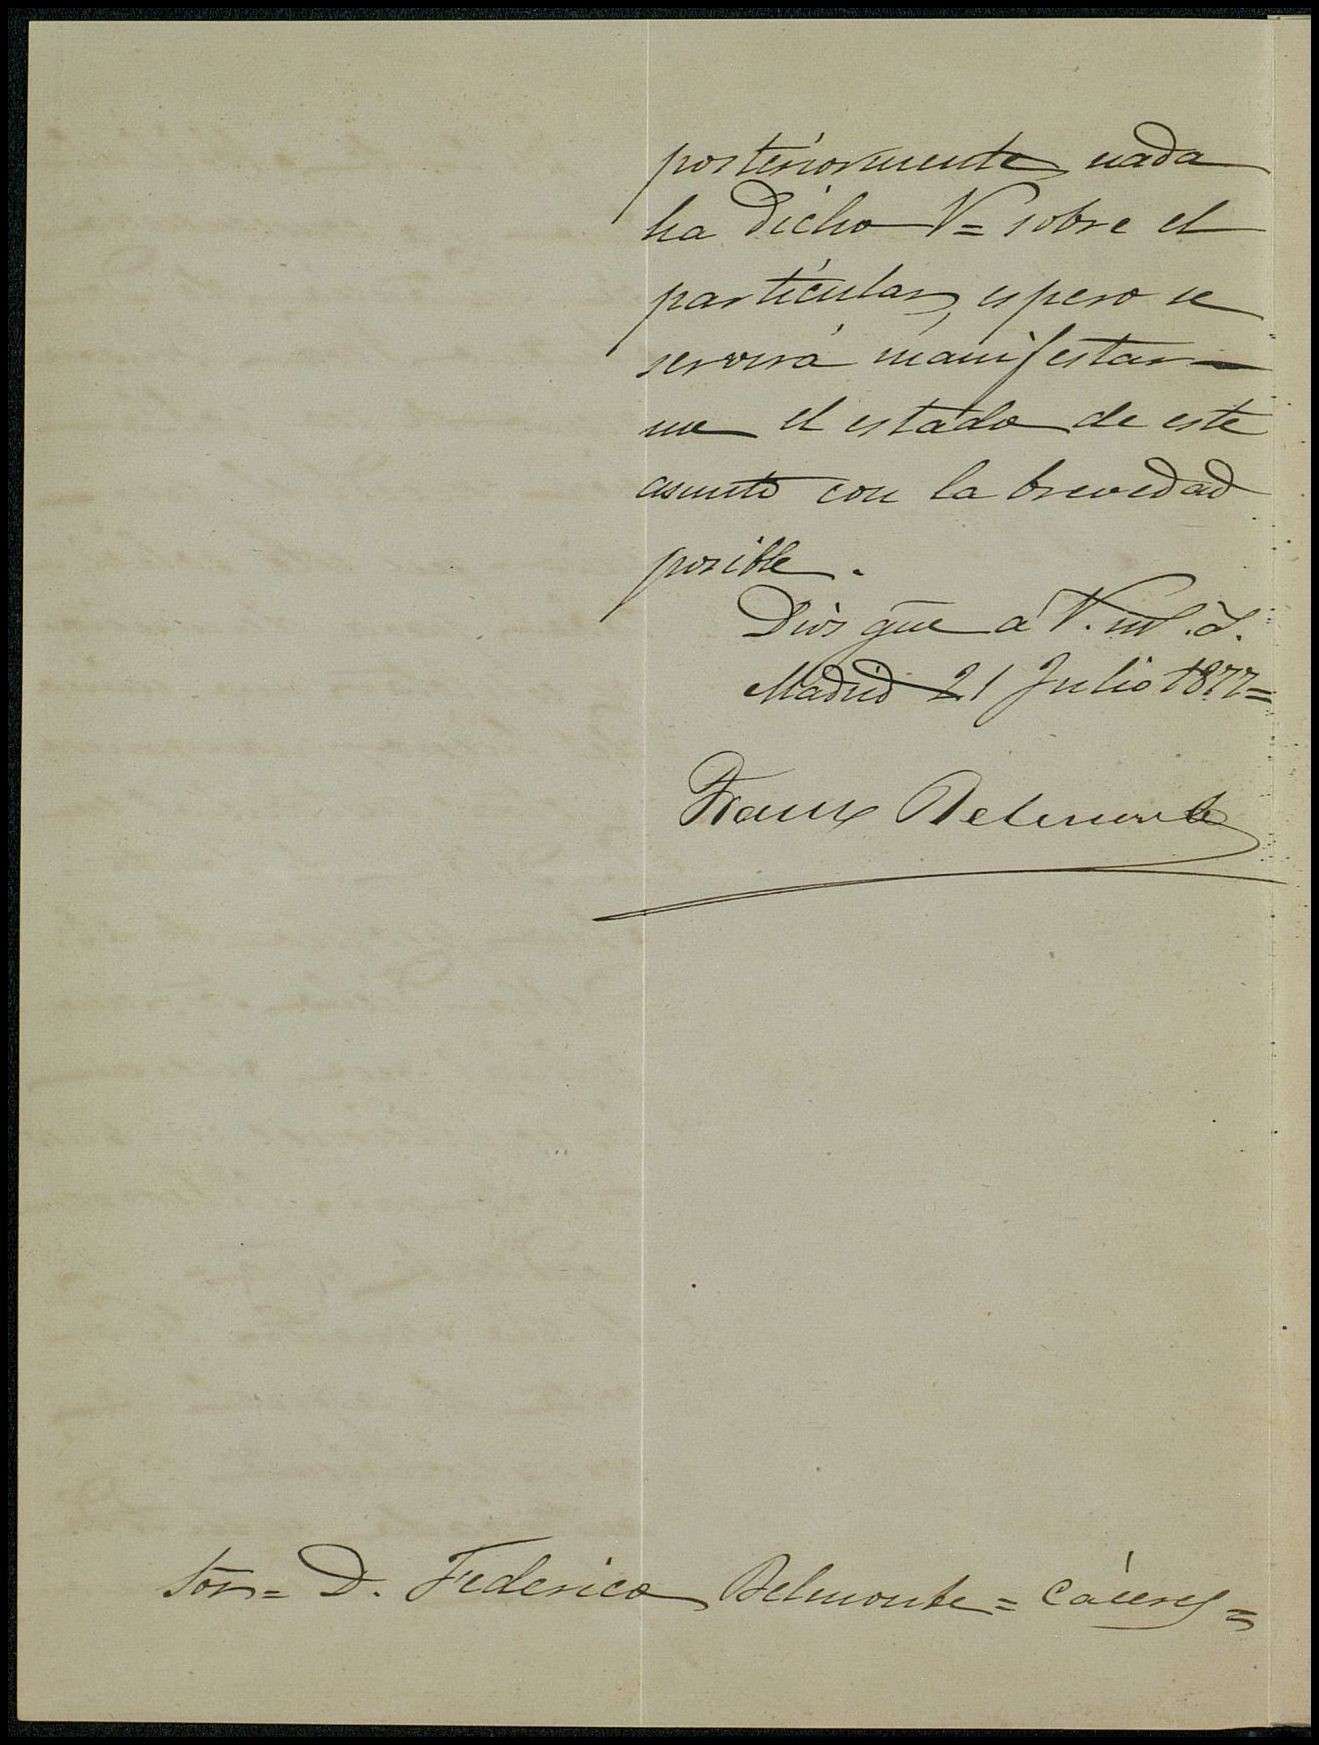 posteriormente nada
ha dicho V= sobre el
particular, espero se
servirá manifestar=
me el estado de este
asunto con la brevedad
posible.
Dios gue á V. m.s a.s.
Madrid 21 Julio 1877=
Belmonte
Sor= D. Federico Belmonte= Cáceres=